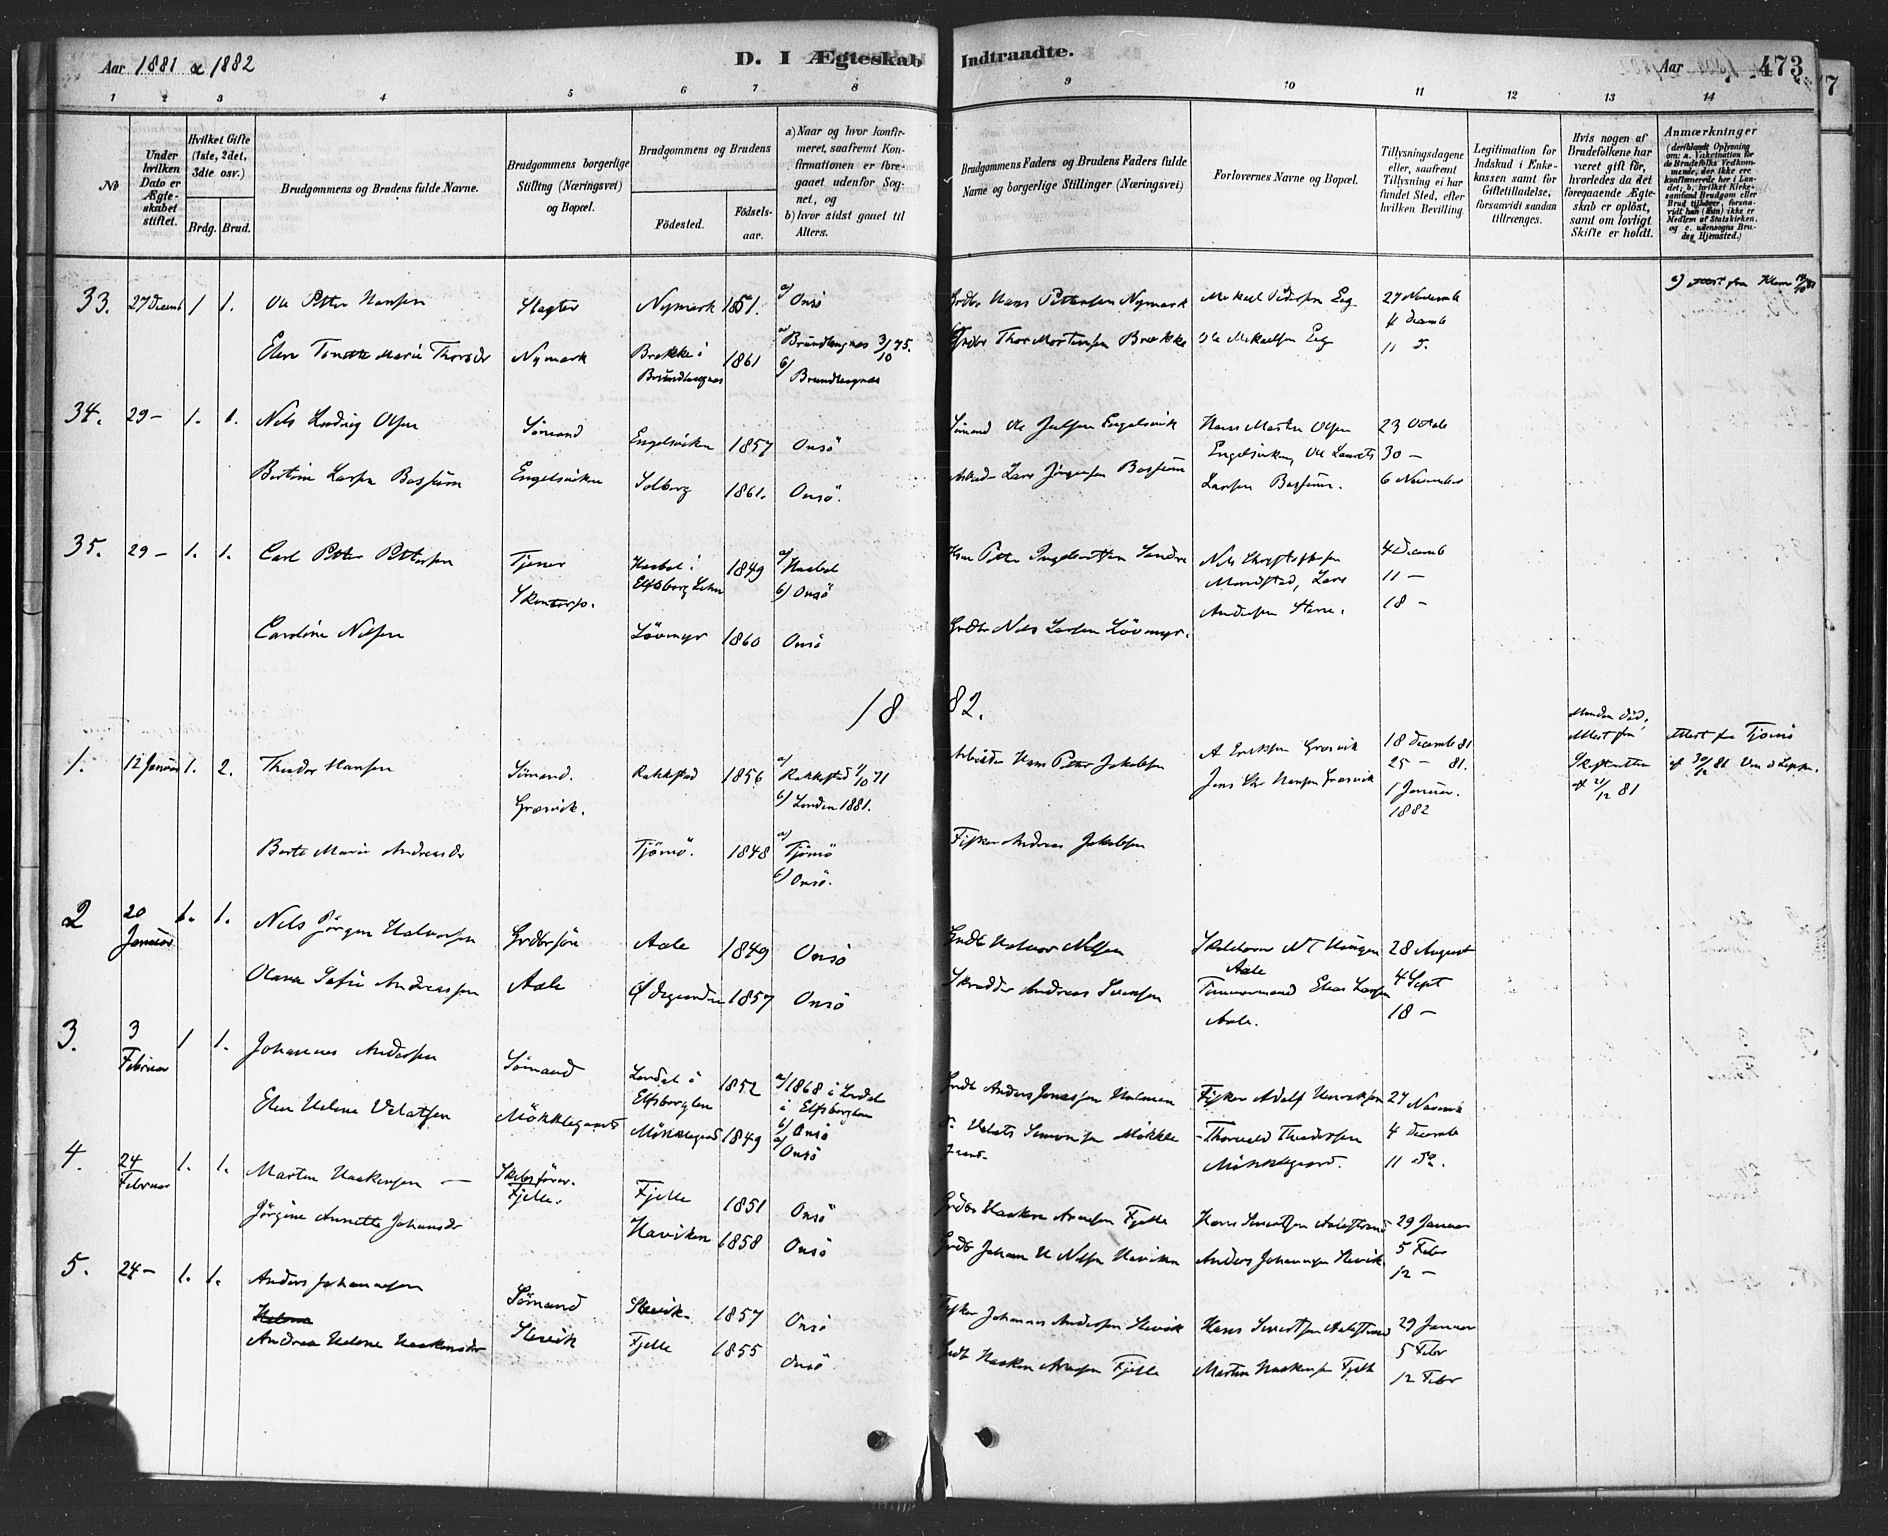 Aar 1881 & 1882
D. I Ægteskab Indtraadte.
Aar
473
1 2 3 4 5 6 7 8 9 10 11 12 13 14
No
Under hvilken Dato er Ægteskabet stiftet.
Hvilket Gifte (1ste, 2det, 3die osv.)
Brdg. Brud.
Brudgommens og Brudens fulde Navne.
Brudgommens borgerlige Stilling (Næringsvei) og Bopæl.
Brudgommens og Brudens
Fødested.
Fødselsaar.
a) Naar og hvor konfirmeret, saafremt Konfirmationen er foregaaet udenfor Sognet, og
b) hvor sidst gaaet til Alters.
Brudgommens Faders og Brudens Faders fulde Navne og borgerlige Stillinger (Næringsvei)
Forlovernes Navne og Bopæl.
Tillysningsdagene eller, saafremt Tillysning ei har fundet Sted, efter hvilken Bevilling.
Legitimation for Indskud i Enkekassen samt for Giftetilladelse, forsaavidt saadan tiltrænges.
Hvis nogen af Brudefolkene har været gift før, hvorledes da det foregaaende Ægteskab er opløst, samt om lovligt Skifte er holdt.
Anmærkninger
33. 27 Decemb 1 1. Ole Petter Hansen Slagter Nymark 1851. a/ Onsö Grdbr Hans Pettersen Nymark Mekael Pedersen Eeg 27 Novemb
4 Decemb
Elen Tonette Marie Thorsdr Nymark Brekke i Brundlagnæs 1861 a/ Brundlagnæs 3/10 75. b/ Brundlagnæs Grdbr Thor Mortensen Brekke Ole Mekaelsen Eeg 11 D.
34. 29 — 1. 1. Nils Ludvig Olsen Sömand Engelsviken 1857 Onsö Sömand Ole Julsen Engelsvik Hans Martin Olsen 23 Octob
Engelsviken, Ole Laurits 30 —
Bertine Larsen Bossum Engelsviken Solberg 1861. Onsö. Arbeid Lars Jörgensen Bossum Larsen Bossum. 6 November
35. 29 — 1. 1. Carl Petter Pettersen Tjener Haabol i Elfsborg Lehn 1849 a/ Haabol b/ Onsö 4 Decemb
Skontorp. 11 —
Andersen 18 —
Caroline Nilsen Lövmyr 1860 Onsö Grdbr Nils Larsen Lövmyr.
18 82.
Manden död.
1. 12 Januar 1. 2. Theodor Hansen Sömand. Rakkestad 1856 a/ Rakkestad 1/10 71 Arbeider Hans Petter Jakobsen A Eriksen Græsvik 18 Decemb 81
Græsvik. b/ London 1881. Jens Chr Hansen Græsvik 25 — 81.
1 Januar. 1882
21/12 81
Attest fra Tjømö
af 30/12 81
Berte Marie Andreasdr Tjömö. 1848 a/ Tjömö b/ Onsö. Fisker Andreas Jakobsen
2 20 Januar 1. 1. Nils Jörgen Halvorsen Grdbrsön Aale 1849 Onsö Grdb Halvor Nilsen 28 August
Aale 4 Sept
Olava Sofie Andreassen Aale Ødegaarden 1857 Onsö Skrædder Andreas Svensen Tömmermand Elias Larsen
Aale. 18 —
3. 3 Februar 1 1. Johannes Andersen Sömand Elfsborglen 1852 a/ 1868 i Elfsborglen b/ Onsö Grdb Anders Jonassen Fisker Adolf Henriksen 27 Novemb
Elen Helene Velatsen Mökklegaard Mökklegaard 1849 a/ Onsö D. Velats Simonsen Mökklegaard. Thorvald Theodorsen Mökklegaard. 4 Decemb
11 do.
4. 24 Februar 1. 1. Martin Haakensen — Skibsförer. Fjelle. Fjelle 1851 Onsö Grdbr Haaken Arnesen Fjelle Hans Sivertsen Aalestrand 29 Januar
Jörgine Annette Johansdr Haviken 1858 Onsö Grdb Johan H Nilsen Haviken Anders Johannesen Slevik 5 Febr
12 —
5. 24 — 1. 1. Anders Johannesen Sömand Slevik 1857 Onsö Fisker Johannes Andersen Slevik Hans Sivertsen Aalestrand 29 Januar
Helene
5 Febr
Andrea Helene Haakensdr Slevik Fjelle 1855 Onsö. Grdb Haaken Arnesen Fjelle Martin Haakensen Fjelle 12 Febr